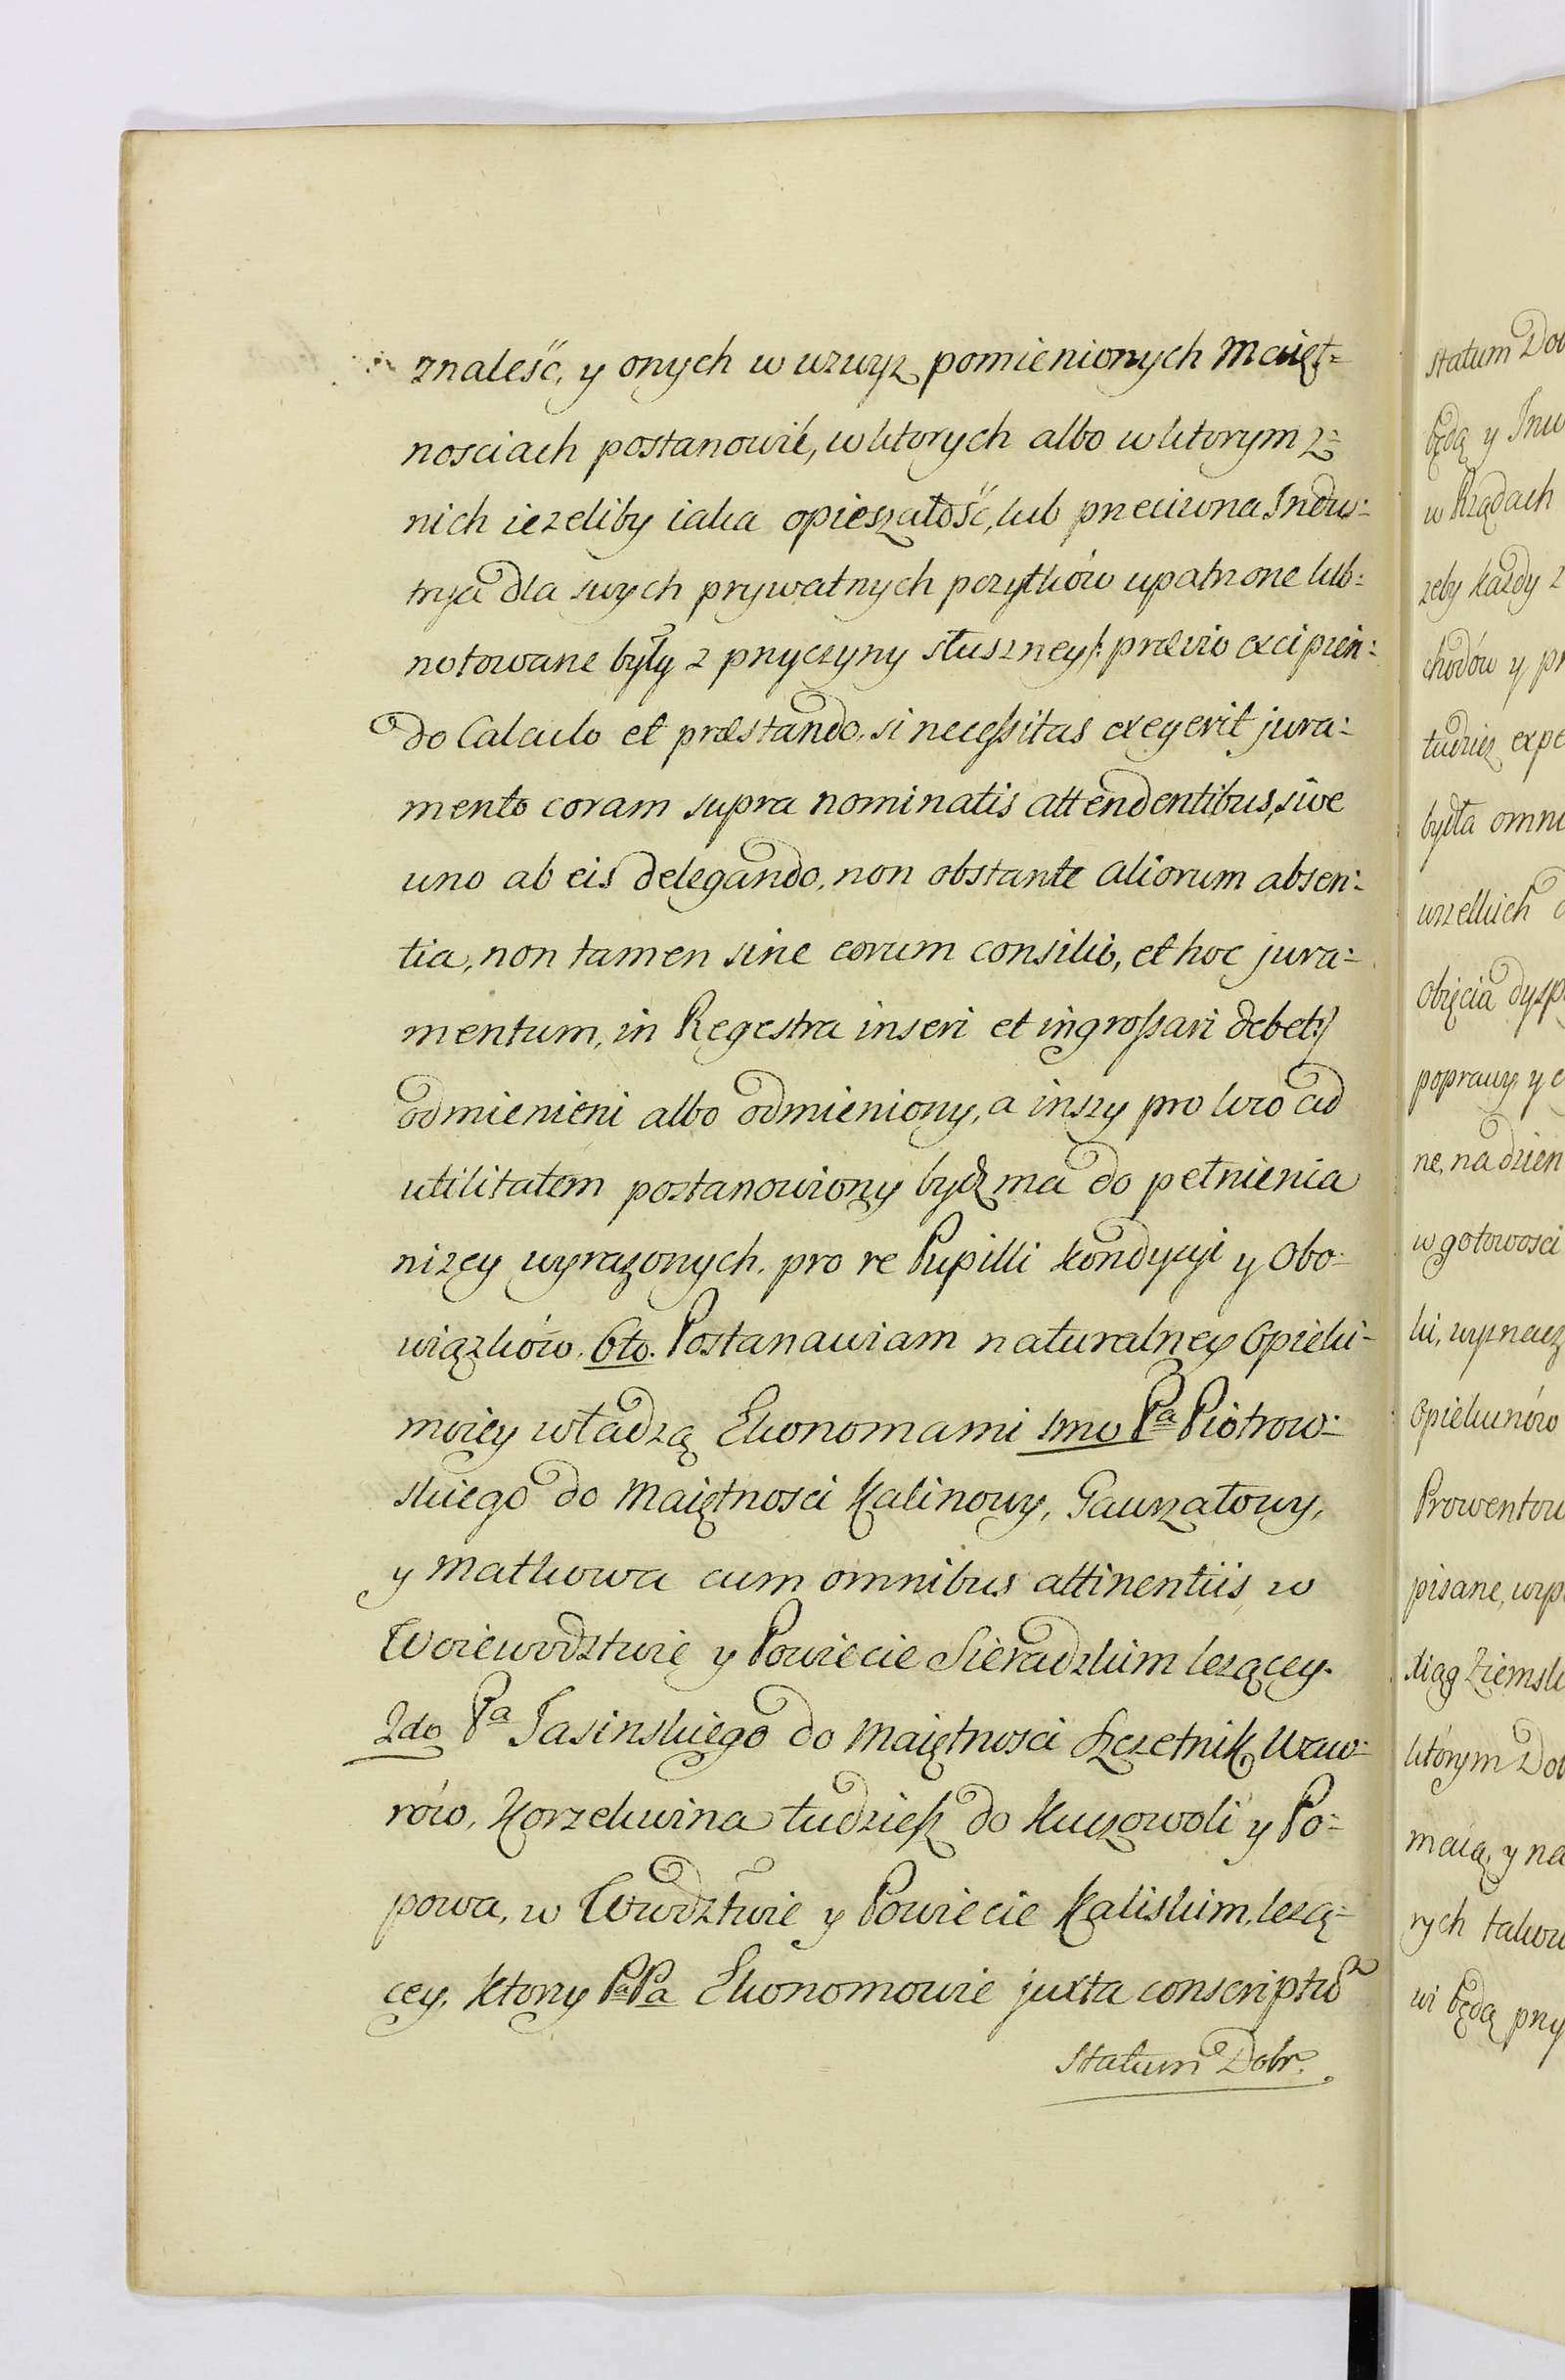 znaleść, y onych w wzwyz pomienionych Maięt=
nosciach postanowić, w ktorych albo w ktorym z=
nich iezeliby iaka opieszałość, lub przeciwna Indus=
trya dla swych prywatnych pozytków upatrzone lub=
notowane były z przyczyny słuszney /: prævio excipien=
do Calculo et præstando, si necessitas exegerit jura=
mento coram supra nominatis attendentibus, sive
uno ab eis delegando, non obstante aliorum absen=
tia, non tamen sine eorum consilio, et hoc jura=
mentum, in Regestra inseri et ingrossari debet :/
odmienieni albo odmieniony, a inszy pro lwo ad
utilitatem postanowiony bydz ma do pełnienia
nizey wyrazonych, pro re Pupilli kondycyi y Obo=
wiązków. 6to. Postanawiam naturalney Opieki=
moiey władzą Ekonomami 1mo Pa Piotrow=
skiego do Maiętnosci Kalinowy, Gawrzatowy,
y Matkowa cum omnibus attinentiis, w
Woiewodztwie y Powiecie Sieradzkim lezącey.
2do Pa Jasinskiego do Maiętnosci Szczetnik, Waw=
rów, Korzekwina tudziesz do Kuczowoli y Po=
powa, w Wwdztwie y Powiecie Kaliskim, lezą=
cey, ktorzy PaPa Ekonomowie juxta conscriptu
Statum Dobr.
statum Dob
będą y Inw
w Rządach
zeby kazdy z
chodów y pr
tudziez expe
bydła omni
wszelkich d
obięcia dysp
poprawy, y c
ne, na dzien
w gotowosci
ki, wyznacz
Opiekunów
Prowentow
pisane, wyp
xiąg Ziemsk
którym Dob
maią, y na
rych takow
wi będą przy